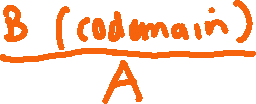 B (codomain)
A